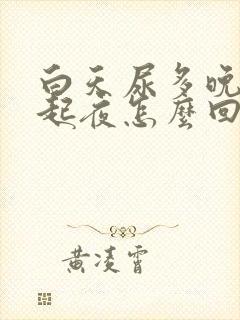 白天尿多晚
起夜怎麼回
黃凌霄